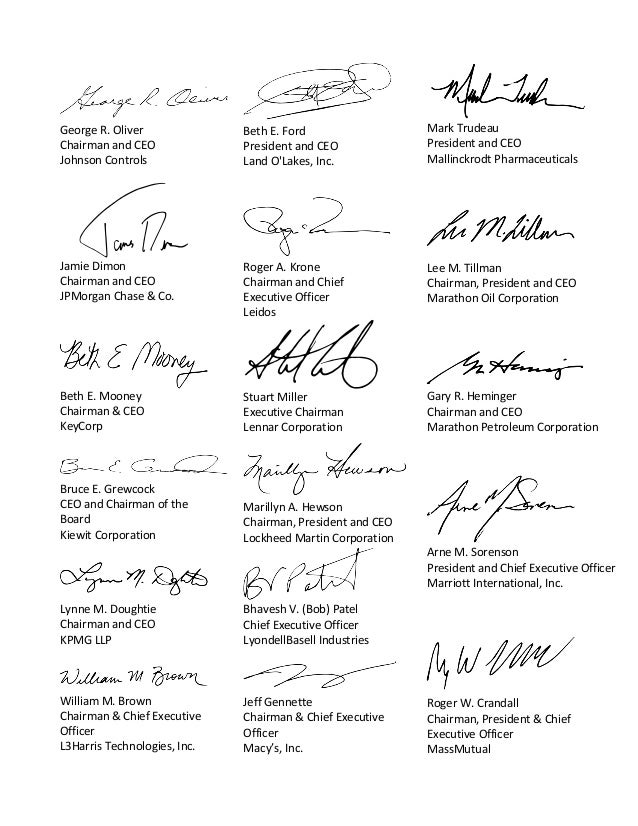 George R. Oliver
George R. Oliver
Chairman and CEO
Johnson Controls
Beth E. Ford
President and CEO
Land O'Lakes, Inc.
Mark Trudeau
President and CEO
Mallinckrodt Pharmaceuticals
Jamie Dimon
Chairman and CEO
JPMorgan Chase & Co.
Roger A. Krone
Chairman and Chief
Executive Officer
Leidos
Lee M. Tillman
Lee M. Tillman
Chairman, President and CEO
Marathon Oil Corporation
Beth E Mooney
Beth E. Mooney
Chairman & CEO
KeyCorp
Stuart Miller
Executive Chairman
Lennar Corporation
Gary R. Heminger
Chairman and CEO
Marathon Petroleum Corporation
Bruce E. Grewcock
CEO and Chairman of the
Board
Kiewit Corporation
Marillyn Hewson
Marillyn A. Hewson
Chairman, President and CEO
Lockheed Martin Corporation
Arne M. Sorenson
President and Chief Executive Officer
Marriott International, Inc.
Lynne M. Doughtie
Chairman and CEO
KPMG LLP
BV Patel
Bhavesh V. (Bob) Patel
Chief Executive Officer
LyondellBasell Industries
William M Brown
William M. Brown
Chairman & Chief Executive
Officer
L3Harris Technologies, Inc.
Jeff Gennette
Chairman & Chief Executive
Officer
Macy's, Inc.
Roger W. Crandall
Chairman, President & Chief
Executive Officer
MassMutual